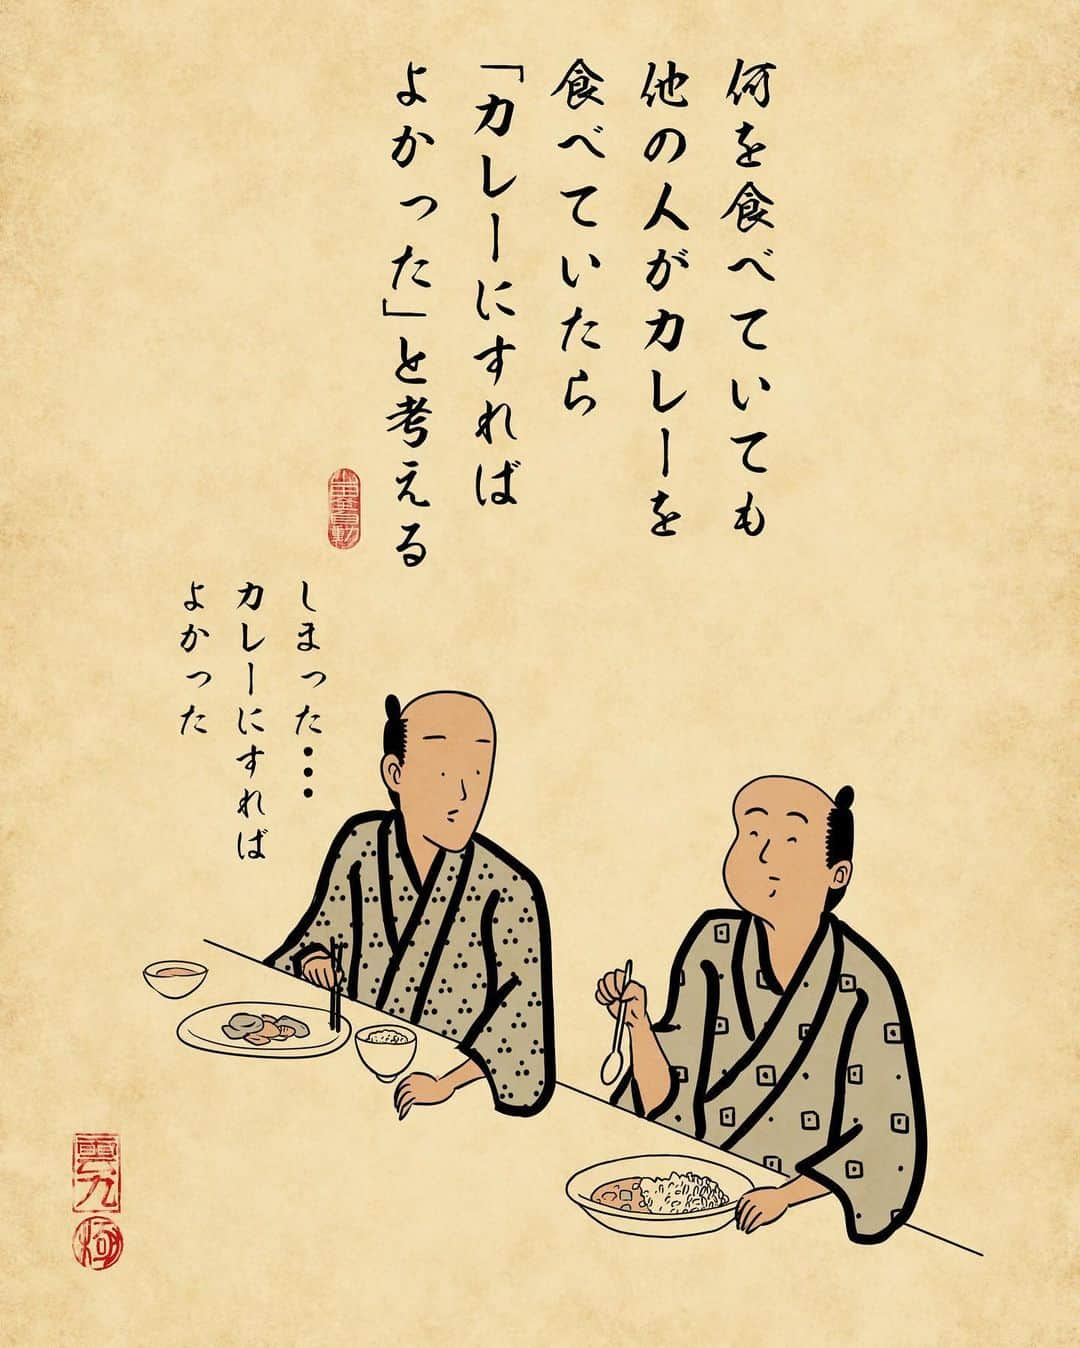 何を食べていても
他の人がカレーを
食べていたら
「カレーにすれば
よかった」と考える
しまった・・・
カレーにすれば
よかった